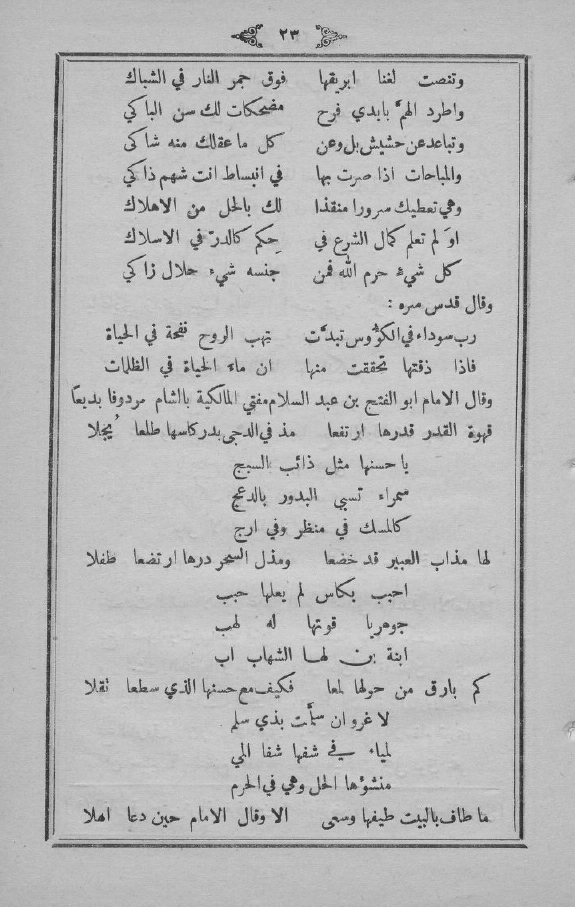 ٢٣
وتنصت لغنا ابريقها فوق جمر النار في الشباك
واطرد الهمّ بايدي فرح مضحكات لك سن الباكي
وتباعد عن حشيش بل وعن كل ما عقلك منه شاكي
والمباحات اذا صرت بها في انبساط انت شهم ذاكي
وهي تعطيك سرورا منقذا لك بالحل من الاهلاك
اوَ لم تعلم كمال الشرع في حِكم كالدرّ في الاسلاك
كل شيءٍ حرم الله فمن جنسه شيء حلال زاكي
وقال قدس سره :
رب سوداء في الكؤوس تبدَّت تهب الروح نفحة في الحياة
فاذا ذقتها تحققت منها ان ماء الحياة في الظلمات
وقال الامام ابو الفتح بن عبد السلام مفتي المالكية بالشام مردوفا بديعاً
قهوة القدر قدرها ارتفعا مذ في الدجى بدر كاسها طلعا يُجلا
يا حسنها مثل ذائب السبج
سمراء تسبي البدور بالدعج
كالمسك في منظر وفي ارج
لها مذاب العبير قد خضعا ومذل السحر درها ارتضعا طفلا
احبب بكاس لم يعلها حبب
جوهريا قوتها له لهب
ابنة بن لها الشهاب اب
كم بارق من حولها لمعا فكيف مع حسنها الذي سطعا تقلا
لا غرو ان سمَّت بذي سلم
لمياء في شفها شفا المي
منشؤها الحل وهي في الحرم
ما طاف بالبيت طيفها وسعى الا وقال الامام حين دعا اهلا